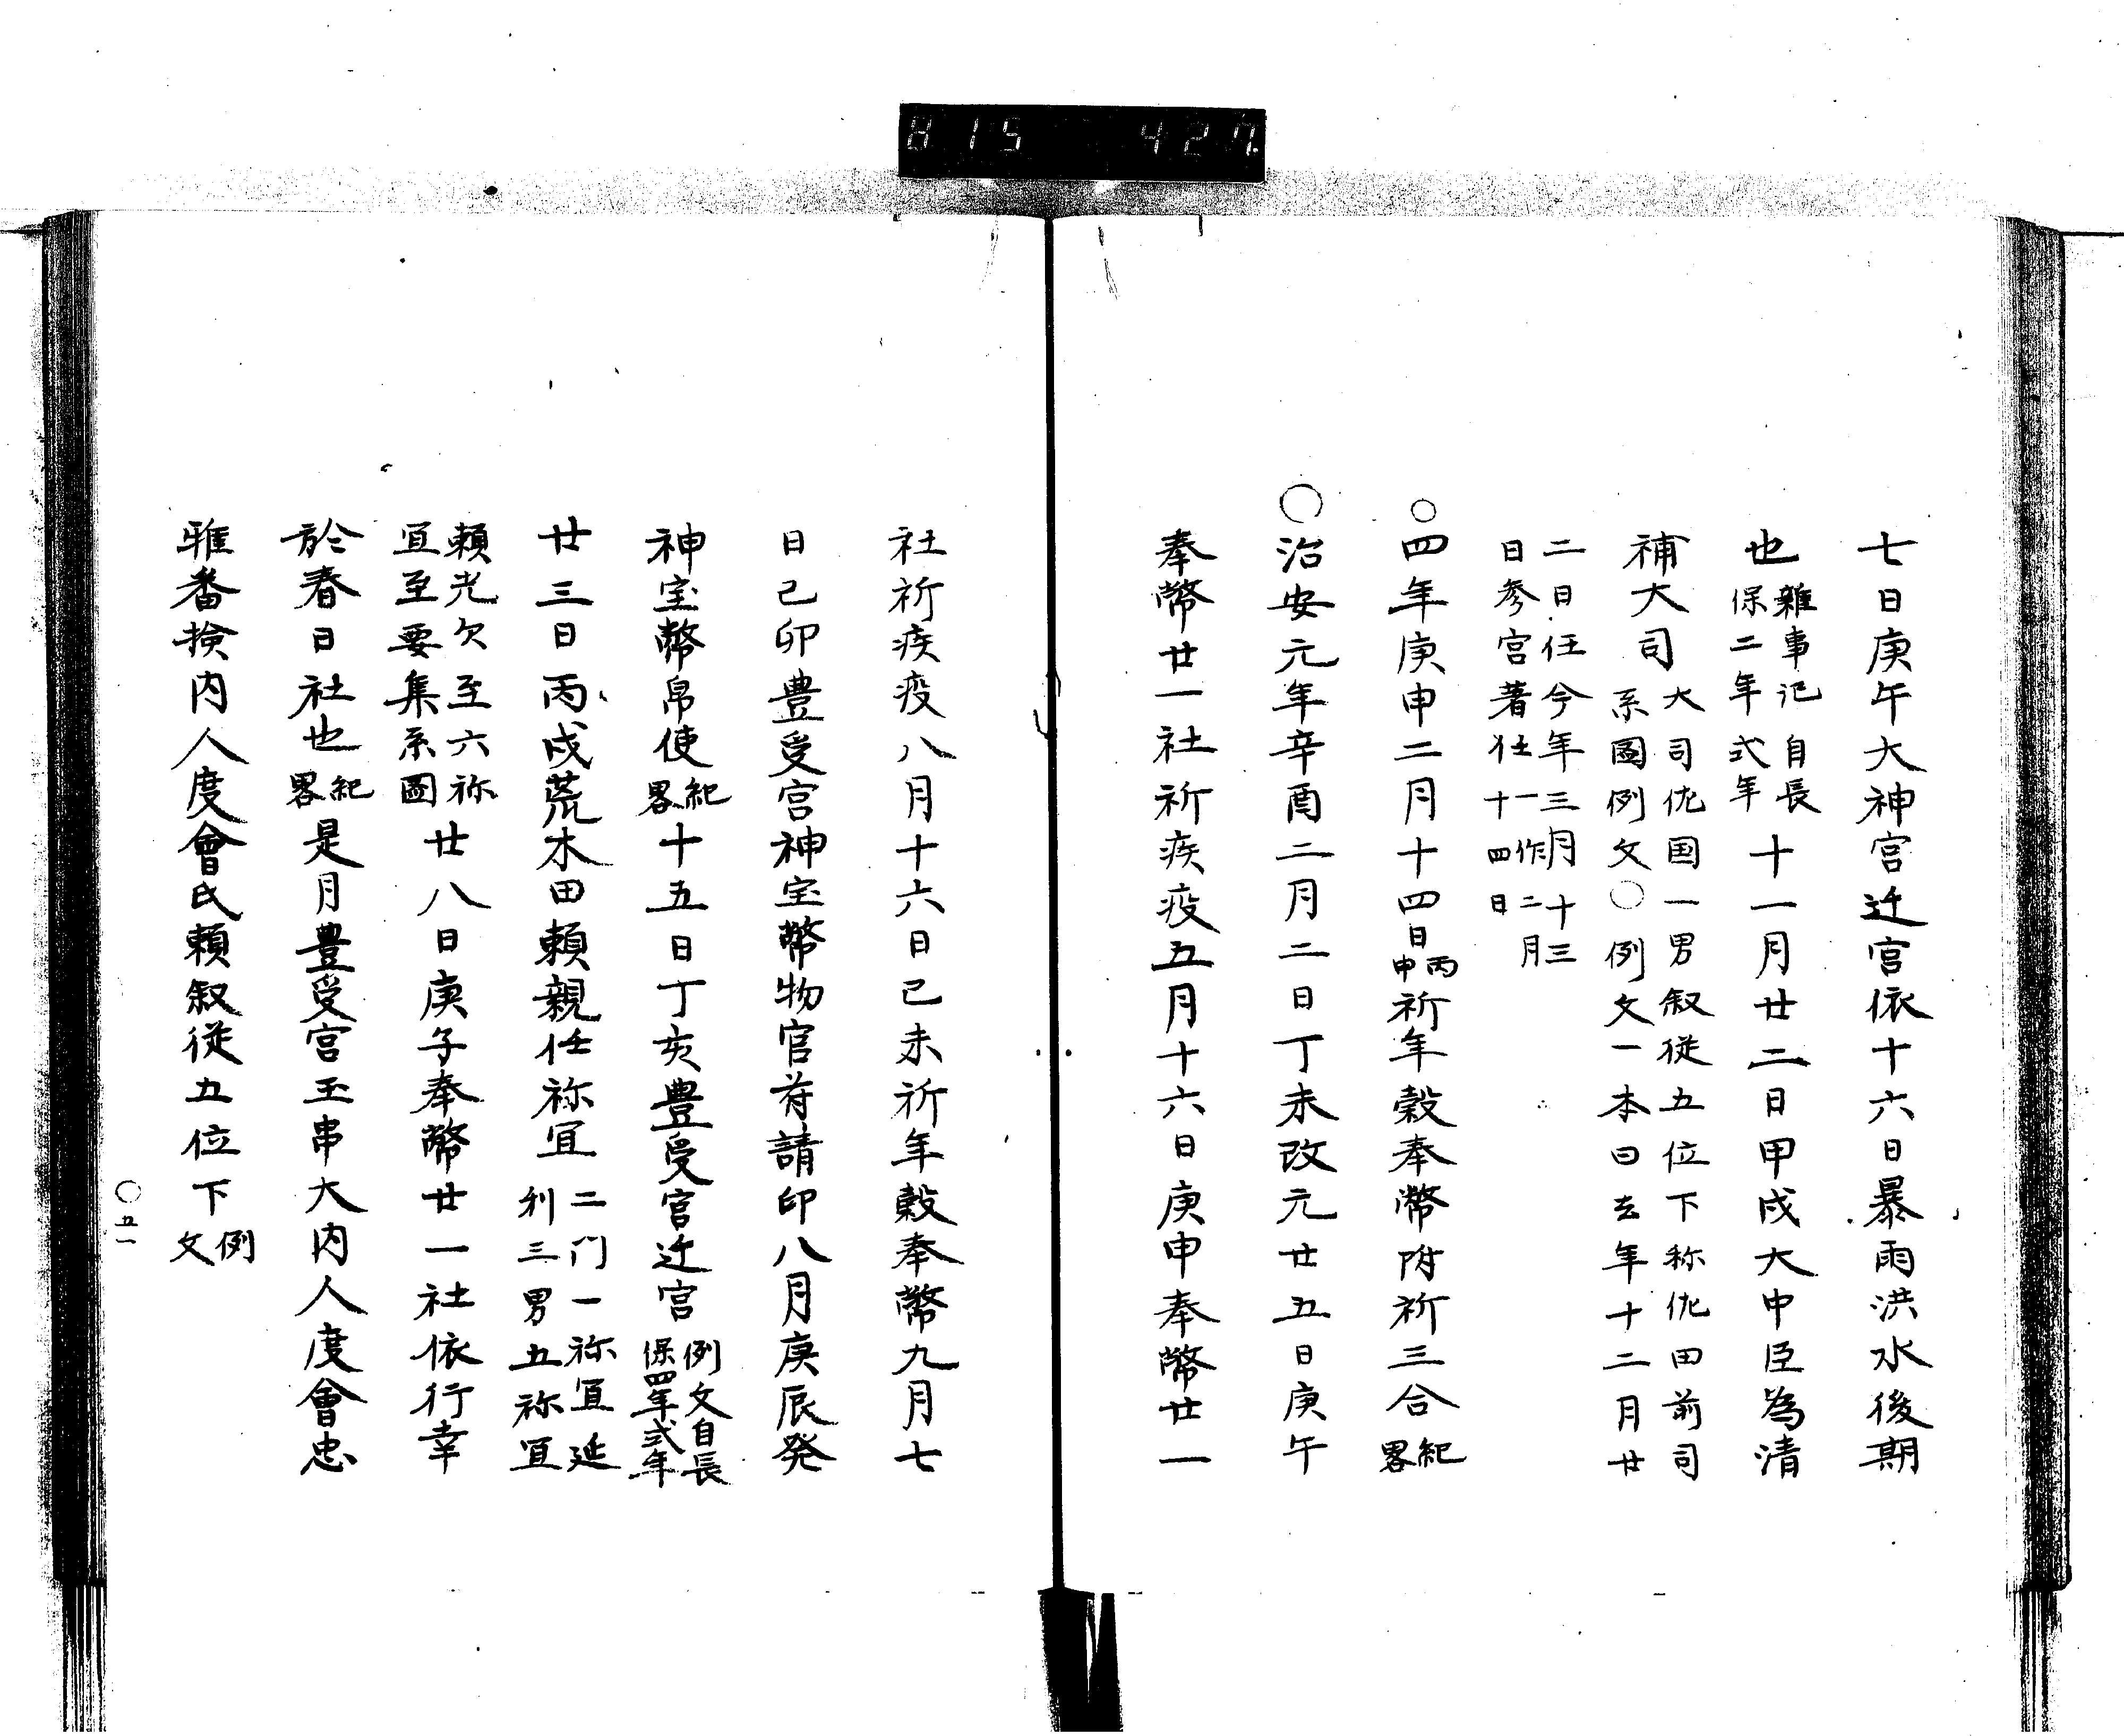 815 427
七日庚午大神宮迁宮依十六日暴雨洪水後期
也雜事记自長保二年式年十一月廿二日甲戌大中臣為清
補大司大司佐国一男叙従五位下称佐田前司系圖例文〇例文一本曰去年十二月廿
二日任今年三月十三日参宮著任一作二月十四日
〇四年庚申二月十四日丙申祈年穀奉幣附祈三合紀畧
〇治安元年辛酉二月二日丁未改元廿五日庚午
奉幣廿一社祈疾疫五月十六日庚申奉幣廿一
社祈疾疫八月十六日己未祈年穀奉幣九月七
日己卯豊受宮神宝幣物官苻請印八月庚辰発
神宝幣帛使紀畧十五日丁亥豊受宮迁宮例文自長保四年式年
廿三日丙戌荒木田頼親任祢宜二门一祢宜延利三男五祢宜
頼光欠至六祢宜至要集系圖廿八日庚子奉幣廿一社依行幸
於春日社也紀畧是月豊受宮玉串大内人度會忠
雅番捡内人度會氏頼叙従五位下例文
〇五一